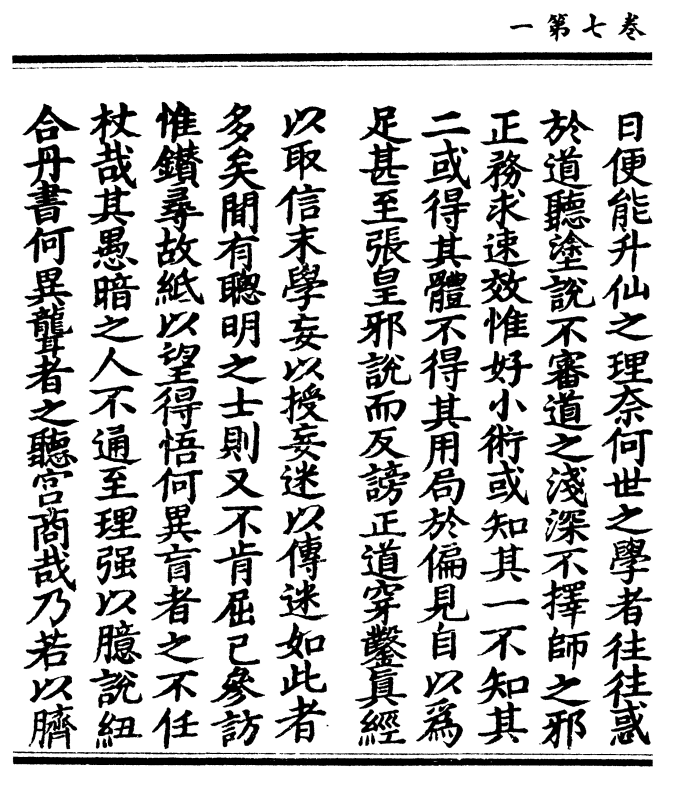 卷七第一
日便能升仙之理奈何世之學者往往惑
於道聽塗說不審道之淺深不擇師之邪
正務求速效惟好小術或知其一不知其
二或得其體不得其用局於偏見自以爲
足甚至張皇邪說而反謗正道穿鑿眞經
以取信末學妄以授妄迷以傳迷如此者
多矣間有聰明之士則又不肯屈己參訪
惟鑽尋故紙以望得悟何異盲者之不任
杖哉其愚暗之人不通至理强以臆說紐
合丹書何異聾者之聽宮商哉乃若以臍